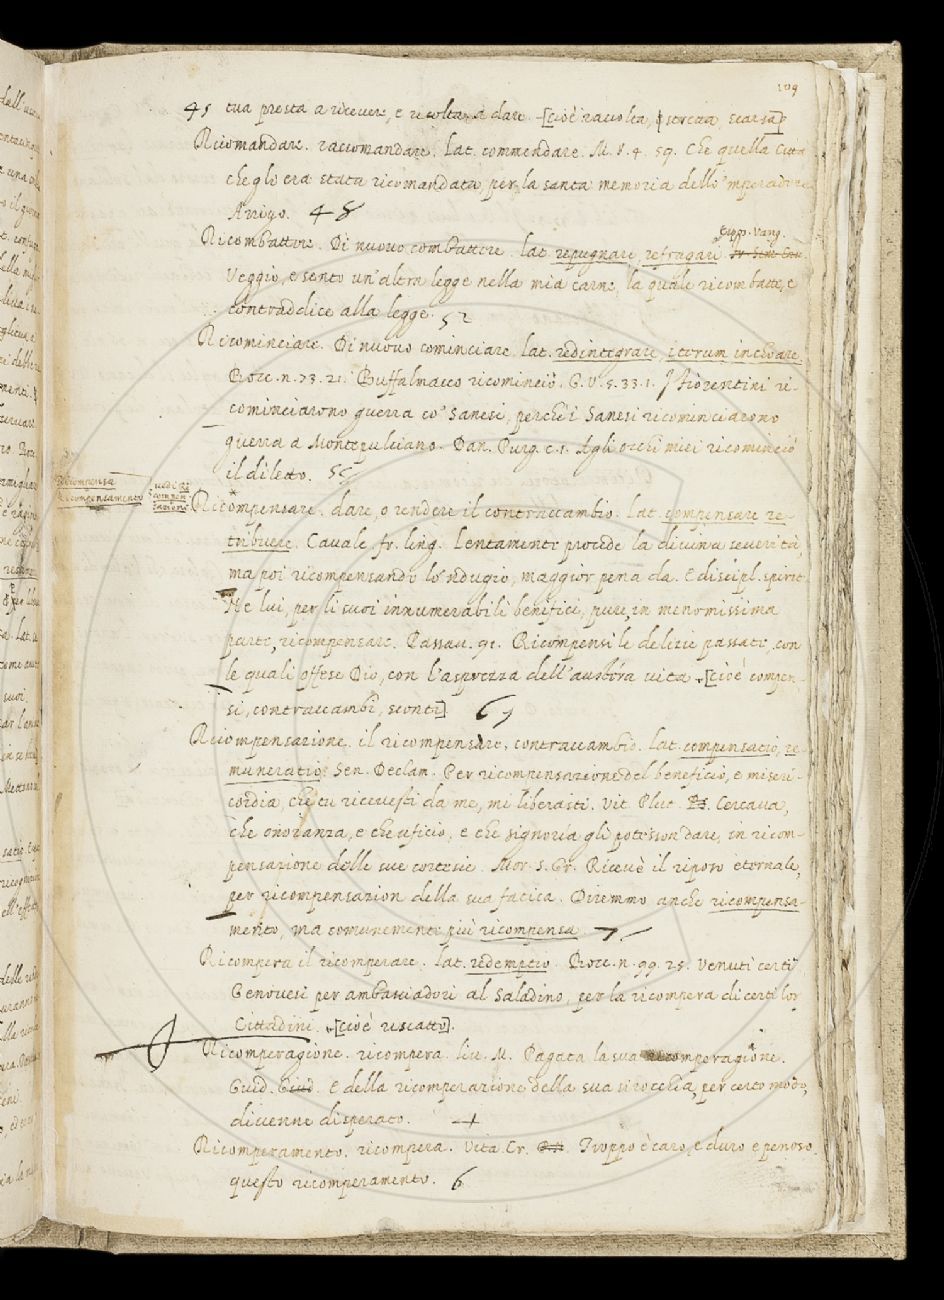 109
45 tua presta a ricevere, e ricolta a dare [cioè raccolta, stretta, scarsa]
Ricomandare. raccomandare. Lat. commendare. M. V. 4. 59. Che quella Città
che gl'era stata ricomandata per la santa memoria dello 'mperadore
Arrigo. 48
Giosp. Vang.
Ricombattere. Di nuovo combattere. lat. repugnare, refragari
Veggio, e sento un'altra legge nella mia carne, la quale ricombatte, e
contraddice alla legge. 52
Ricominciare. Di nuovo cominciare. lat. redintegrare, iterum inchoare.
Bocc. n. 73. 21. Buffalmacco ricominciò. G. V. 5. 33. 1. I Fiorentini ri-
cominciarono guerra co' Sanesi, perchè i Sanesi ricominciarono
guerra a Montepulciano. Dan. Purg. c. 1. Agli occhi miei ricominciò
il diletto. 55
Ricompensa
Ricompensamento
vedi Ri
compen
sazione
Ricompensare. dare, o rendere il contraccambio. Lat. compensare re-
tribuere. Cavalc. fr. ling. Lentamente procede la divina severità,
ma poi ricompensando lo 'ndugio, maggior pena dà. E discipl. spirit.
Ne lui, per li suoi innumerabili benefici, pure, in menomissima
parte, ricompensare. Passav. 91. Ricompensi le delizie passate, con
le quali offese Dio, con l'asprezza dell'austera vita [cioè compen-
si, contraccambi, sconti]
Ricompensazione. il ricompensare, contraccambio. Lat. compensatio, re-
muneratio. Sen. Declam. Per ricompensazione del beneficio, e miseri-
cordia, che tu ricevesti da me, mi liberasti. Vit. Plut. Cercava,
che onoranza, e che uficio, e che signoria gli potesson dare, in ricom-
pensazione delle sue cortesie. Mor. S. Gr. Ricevè il riposo eternale,
per ricompensazion della sua fatica. Diremmo anche ricompensa-
mento, ma comunemente più ricompensa
Ricompera il ricomperare. lat. redemptio. Bocc. n. 99. 25. Venuti certi
Genovesi per ambasciadori al Saladino, per la ricompera di certi lor
Cittadini. [cioè riscatto].
Ricomperagione. ricompera. liv. M. Pagata la sua ricomperagione.
Guid. E della ricomperazione della sua sirocchia, per certo modo,
divenne disperato.
Ricomperamento. ricompera. Vita Cr. Troppo è caro, e duro e penoso
questo ricomperamento. 6